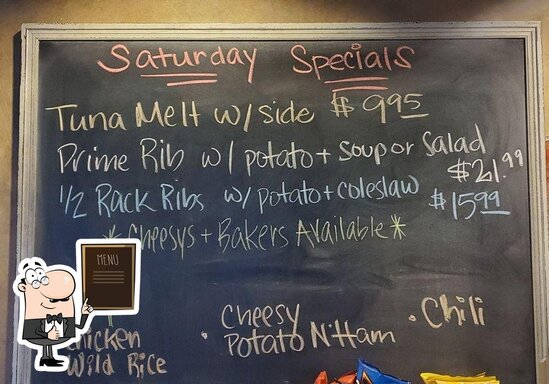 Saturday Specials
Tuna Melt w/side $9.95
Prime Rib w/ potato + soup or Salad $21.99
1/2 Rack Ribs w/ potato + coleslaw $15.99
*Cheesys + Bakers Available*
MENU
Chicken Wild Rice
• Cheesy Potato N' Ham
• Chili